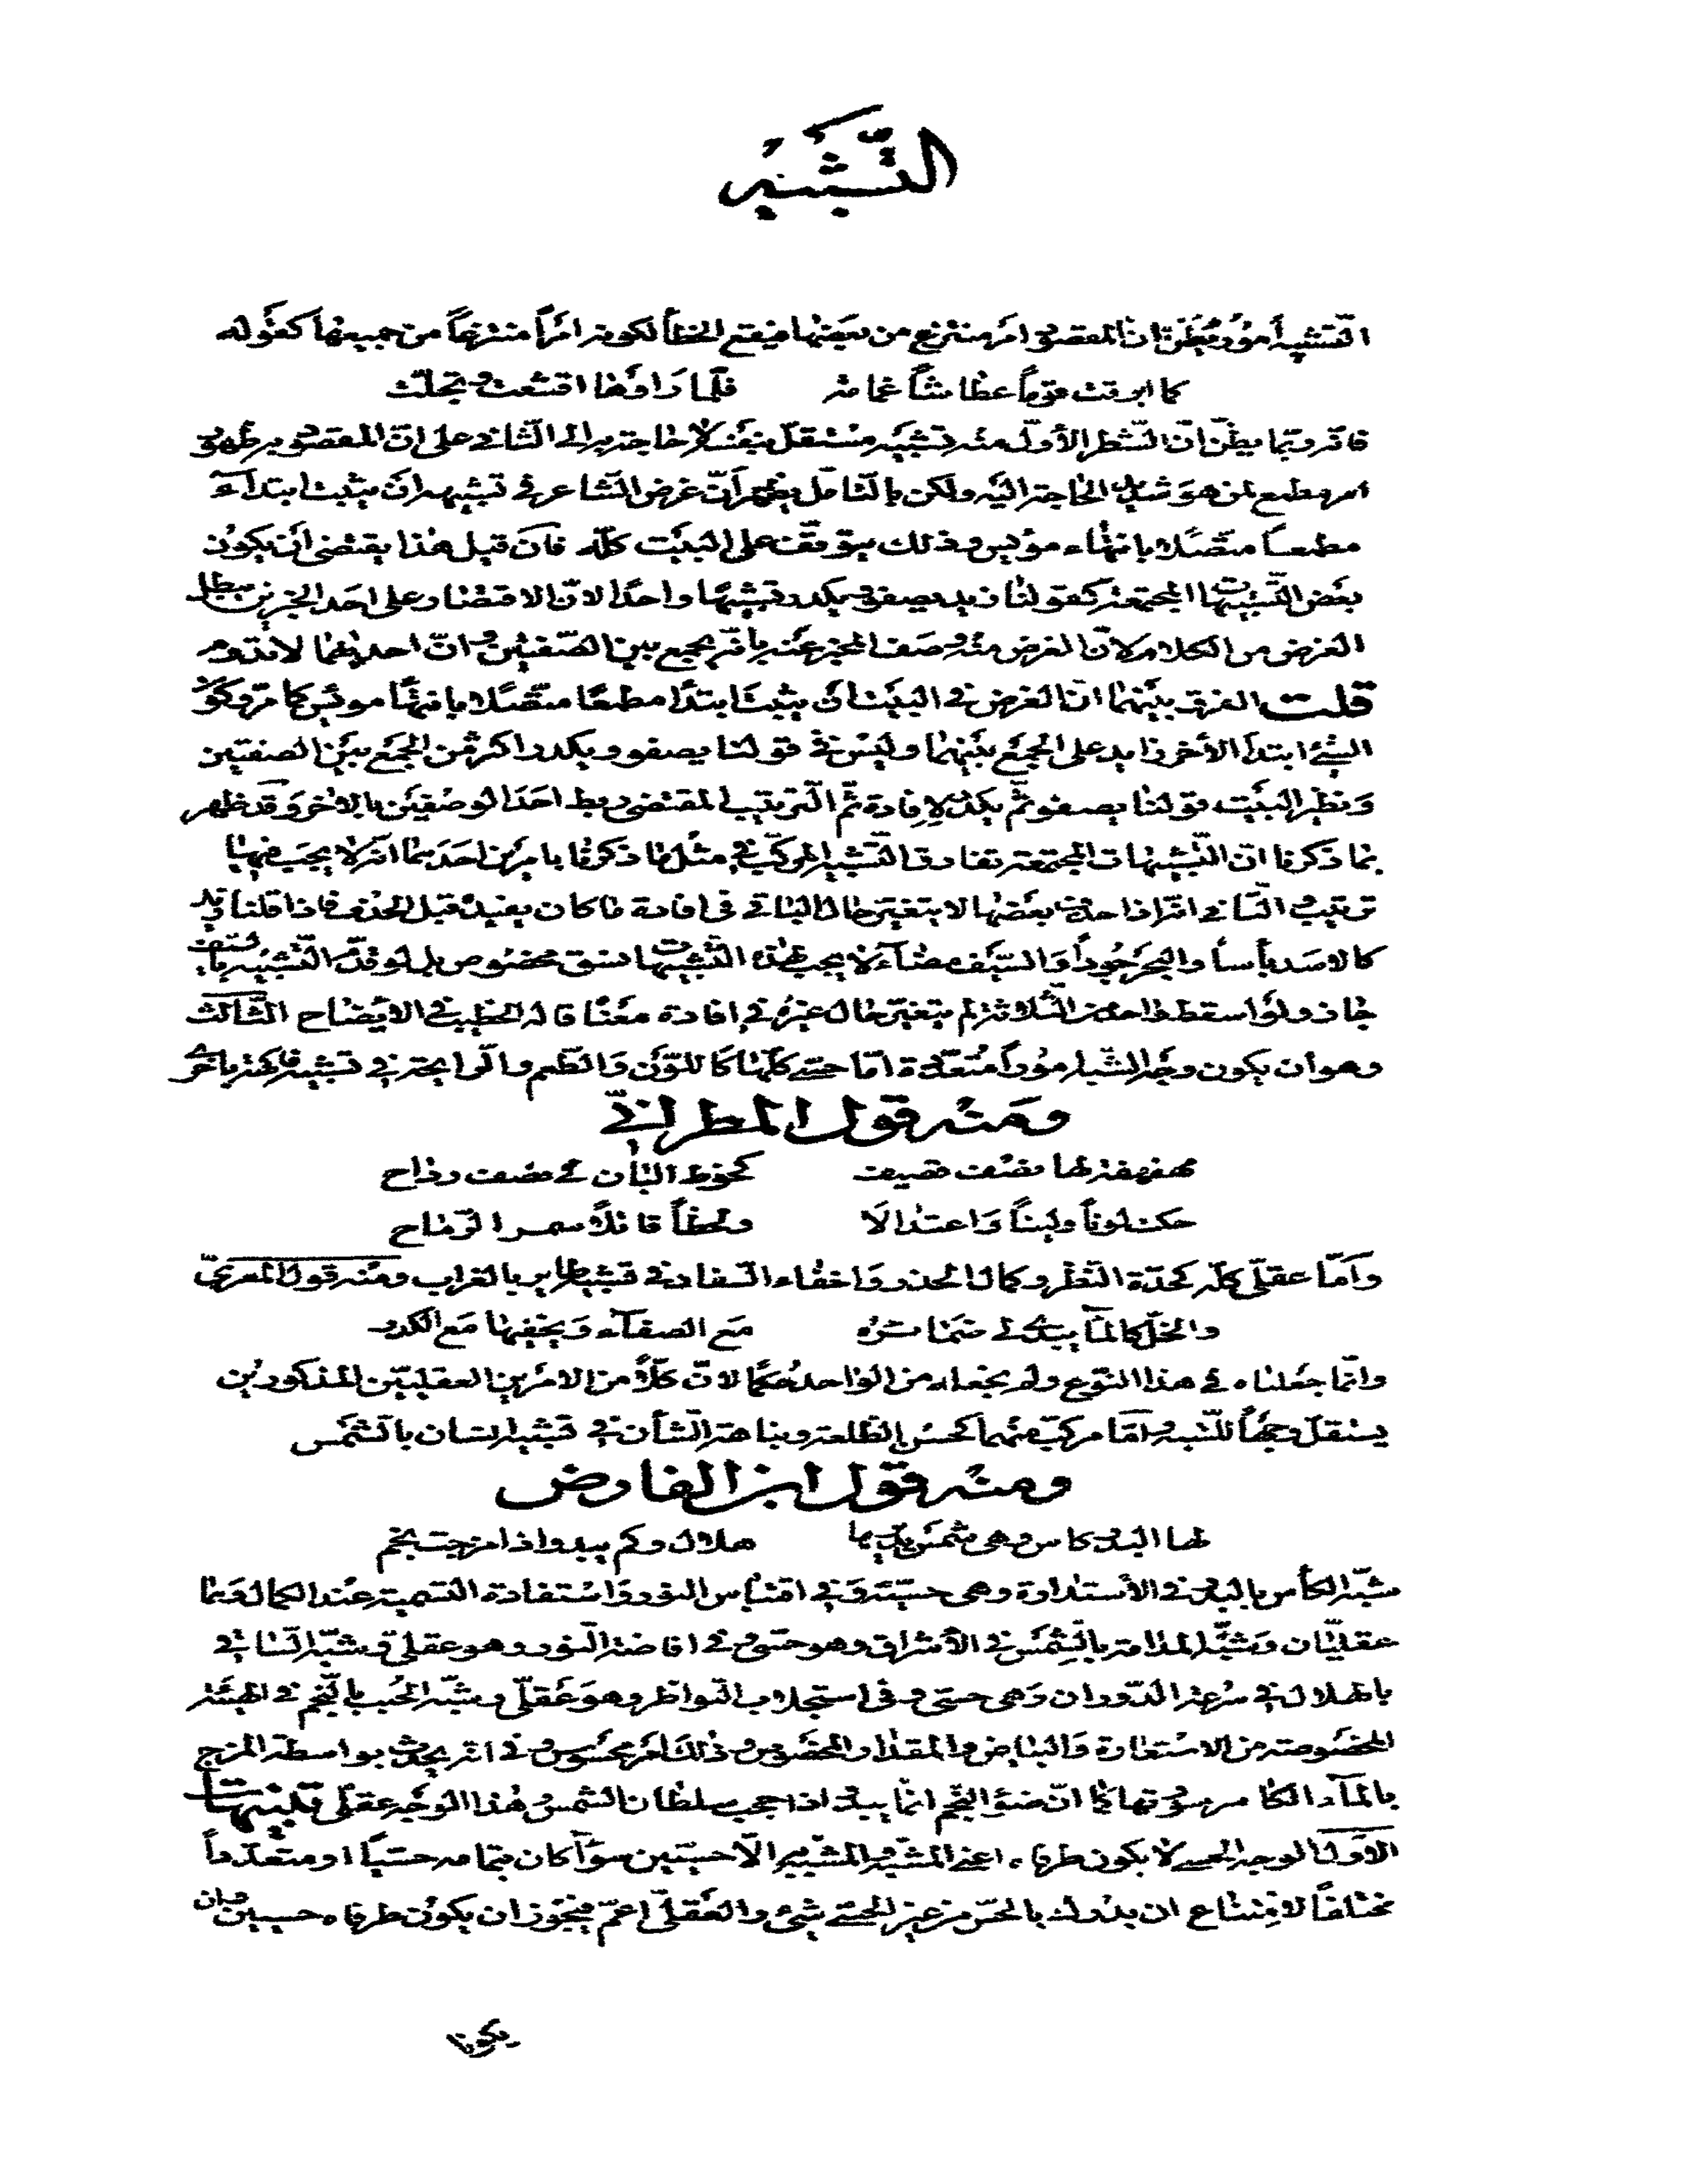 التشبيه
التشبيه أمور يظن ان المقصود امر منتزع من بعضها فيقع الخطأ لكونه امراً منتزعاً من جميعها كقوله
كما ابرقت قوماً عطاشاً غمامة فلما رأوها اقشعت وتجلت
فانه ربما يظن ان الشطر الأول منه تشبيه مستقل بنفسه لا حاجة به الى الثاني على ان المقصود به ظهور
امر مطمع لمن هو شديد الحاجة اليه ولكن بالتأمل يظهر أن غرض الشاعر في تشبيهه ان يثبت ابتدآء
مطمعاً متصلا بانتهاء مؤيس وذلك يتوقف على البيت كله فان قيل هذا يقتضى أن يكون
بعض التشبيهات المجتمعة كقولنا زيد يصفو ويكدر تشبيهاً واحدًا لان الاقتصار على احد الخبرين يبطل
الغرض من الكلام لان الغرض منه وصف المخبر عنه بانه يجمع بين الصفتين وان احديهما لا تدوم
قلت الفرق بينهما ان الغرض في البيت ان يثبت ابتدأ مطمعًا متصلا بانتهاء مويس كما مر وكون
الشئ ابتدأ لأخر زايد على الجمع بينهما وليس في قولنا يصفو ويكدر اكثر من الجمع بين الصفتين
ونظير البيت قولنا يصفو ثم يكدر لإفادة ثم الترتيب المقتضى ربط احد الوصفين بالاخر وقد ظهر
بما ذكرنا ان التشبيهات المجتمعة تفارق التشبيه المركب في مثل ما ذكرنا بامرين احدهما انه لا يجب فيها
ترتيب الثاني انه اذا حذف بعضها لا يتغير حال الباقى فى افادة ما كان يفيده قبل الحذف فاذا قلنا زيد
كالاسد بأساً والبحر جوداً والسيف مضآء لا يجب لهذه التشبيهات نسق مخصوص بل لو قدم التشبيه بالسيف
جاز ولو اسقط واحد من الثلاثة لم يتغير حال غيره في افادة معناه قاله الخطيب في الايضاح الثالث
وهو ان يكون وجه الشبه اموراً متعددة اما حسي كلها كاللون والطعم والرايحة في تشبيه فاكهة باخرى
ومنه قول المطراني
مهفهفة لها نصف قصيف كخوط البان في نصف رداح
حكت لوناً وليناً واعتدالا ولحظاً قاتلاً سمر الرماح
وأما عقلى كله كحدة النظر وكمال الحذر واخفاء السفاد في تشبيه طاير بالغراب ومنه قول المعري
والخل كالمآ يبدي لي ضمائره مع الصفآء ويخفيها مع الكدر
وانما جعلناه في هذا النوع ولم نجعله من الواحد حكمًا لان كلاً من الامرين العقليين المذكورين
يستقل وجهاً للشبه وامّا مركب منهما كحسن الطلعة ونباهة الشأن في تشبيه انسان بالشمس
ومنه قول ابن الفارض
لها البدر كاس وهى شمس يديرها هلال وكم يبدو اذا مزجت نجم
شبه الكأس بالبدر في الأستدارة وهى حسية وفي اقتباس النور واستفادة التسمية عند الكمال وهما
عقليان وشبه المدامة بالشمس في الأشراق وهو حسى وفي افاضة النور وهو عقلى وشبه الساقي
بالهلال في سرعة الدوران وهى حسى وفى استجلاب النواظر وهو عقلى وشبه الحبب بالنجم في الهيئة
المخصوصة من الاستدارة والبياض والمقدار المخصوص وذلك امر محسوس وفي انه يحدث بواسطة المزج
بالمآء الكاسر سورتها كما ان ضوء النجم انما يبدو اذا حجب سلطان الشمس وهذا الوجه عقلى تنبيهات
الاول الوجه الحسي لا يكون طرفاه اعني المشبه والمشبه به الا حسيين سوآ كان بتمامه حسيًا او متعدداً
مختلفًا لامتناع ان يدرك بالحس من غير الحسي شئ والعقلي اعم فيجوز ان يكون طرفاه حسيين وان
يكونا